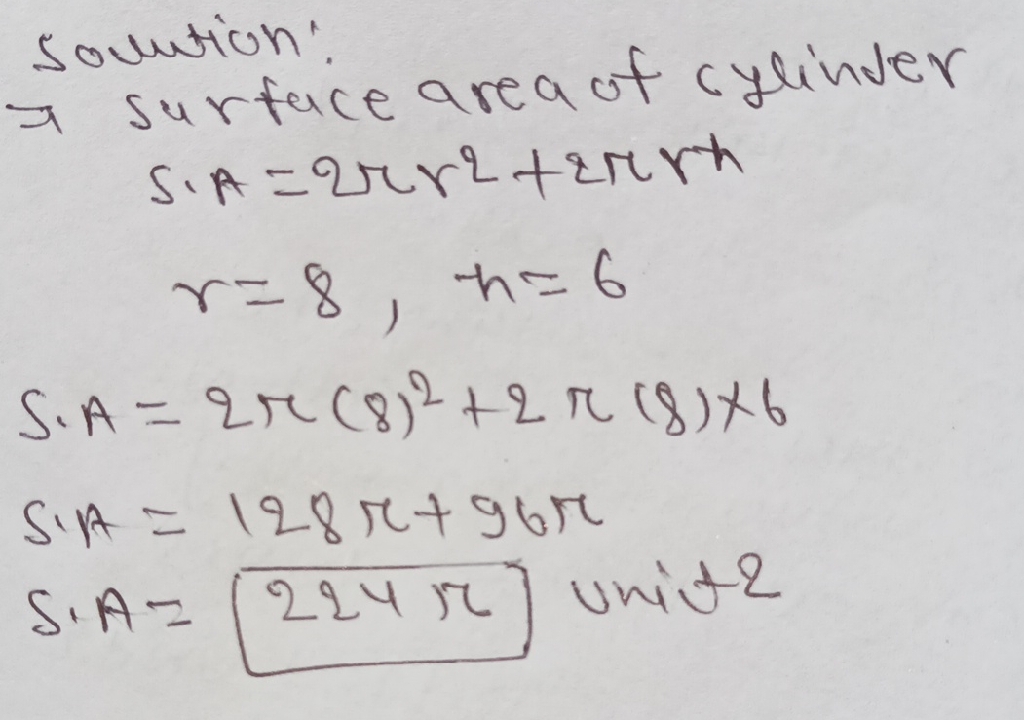 Solution:
→ surface area of cylinder
S.A = 2πr2 + 2πrh
r = 8 , h = 6
S.A = 2π(8)² + 2π(8)×6
S.A = 128π + 96π
S.A = 224π unit2